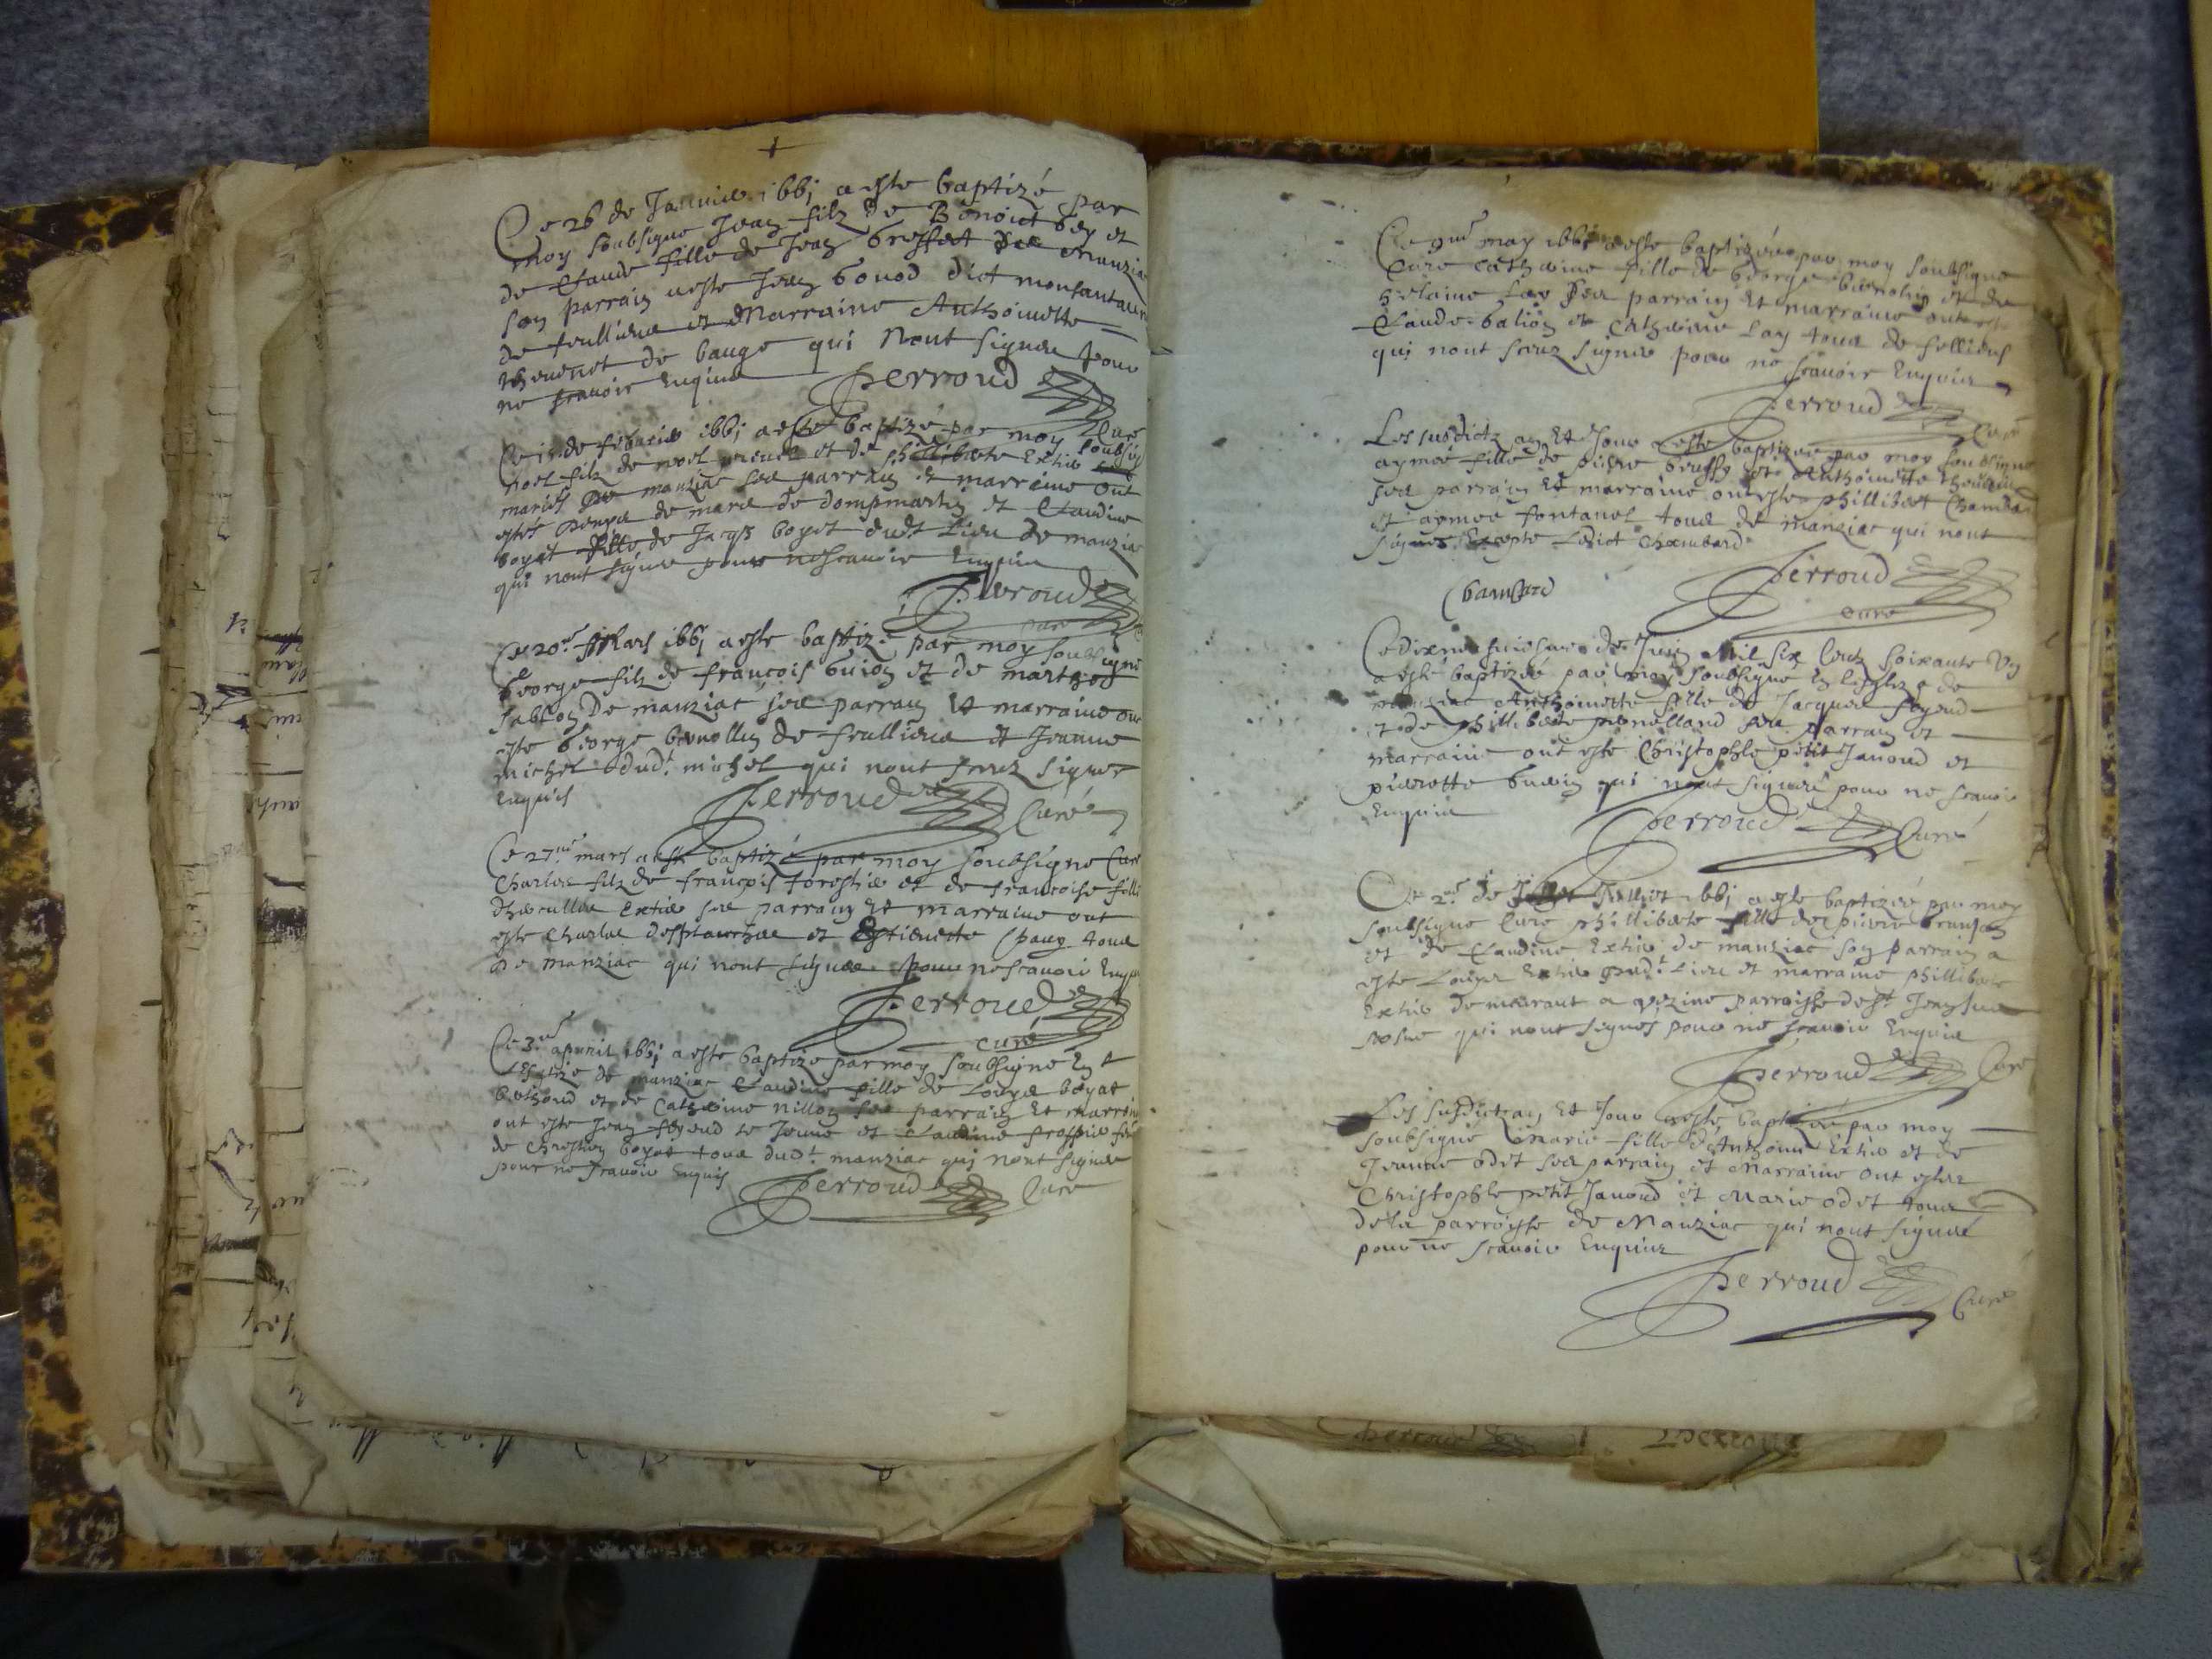 Ce 26 de Januier 1661 a este baptizé par
moy soubsigne Jean filz de Benoict bey et
de Claude fille de Jean broffet de Manzia
son parrain a este Jean bonod dict monsantau
de feullieux et Marraine Anthoinette
theuenot de bauge qui nont signer pour
ne scauoir Enquis Perroud Curé
de feburier 1661 a este baptizé par moy soubsig
noel filz de noel et de phillibeste Extier
mariés de manziac ses parrain et marraine ont
estés de mare de dompmartin et Claudine
boyat fille de Jacqs boyat dudt lieu de manzia
qui nont signer pour ne scauoir Enquis
Perroud
curé
Ce 20me Mars 1661 a este baptizé par moy soubsigne
George filz de françois Guion et de marthe
sablon De manziac ses parrain et marraine ont
este George beruollin de feullieux et Jeanne
michel dudt michel qui nont sceuz signer
Enquis Perroud Curé
Ce 27me mars a este baptizé par moy soubsigne Curé
Charles filz de françois forestier et de françoise fille
Extier ses parrain et marraine ont
este Charles desplanches et Estienette Chany tous
de Manziac qui nont signer pour ne scauoir Enquis
Perroud
curé
Ce 3me apuril 1661 a este baptizé par moy soubsigne En
Lesglize de manziac Claudine fille de Louys boyat
bethoud et de Catherine nillon ses parrain et marrain
ont este Jean feyeud le Jeune et Claudine
de Chrestien boyat tous dudt manziac qui nont signer
pour ne scauoir Enquis Perroud Curé
Ce 9me may 1661 a este baptizée par moy soubsigne
Cure Catherine fille de George beruolin et de
helaine Lay ses parrain et marraine ont este
Claude balion et Catherine Lay tous de fellieus
qui nont sceuz signer pour ne scauoir Enquis
Perroud Curé
Les susdictz an et Jour a este baptizée par moy soubsigne
aymée fille de pierre broffy et de Anthoinette theuenet
ses parrain et marraine ont este phillibert Chambard
et aymee fontanel tous de manziac qui nont
signes Excepte Ledict Chambard
Chambard Perroud
curé
Ce dixneufuiesme de Juin Mil six Centz soixante Vn
a esté baptizée par moy soubsigne En lesglize de
manziac Anthoinette fille de Jacques feyeud
et de phillibeste ses parrain et
marraine ont este Christophle petit Januod et
pierrette Guerin qui nont signeré pour ne scauoir
Enquis Perroud Curé
Ce 2me de Julliet 1661 a este baptizée par moy
soubsigne Cure phillibeste fille de pierre
et de Claudine Extier de manziac son parrain a
este Louys Extier dudt Lieu et marraine phillibeste
Extier demeurant a vezine parroisse de st Jean sur
qui nont signes pour ne scauoir Enquis
Perroud Curé
Les susdictz an et Jour a este baptizée par moy
soubsigné Marie fille d'Anthoine Extier et de
Jeanne odet ses parrain et Marraine ont estez
Christophle petit Januod et Marie odet tous
de la parroisse de Manziac qui nont signeré
pour ne scauoir Enquis
Perroud Curé
Perroud